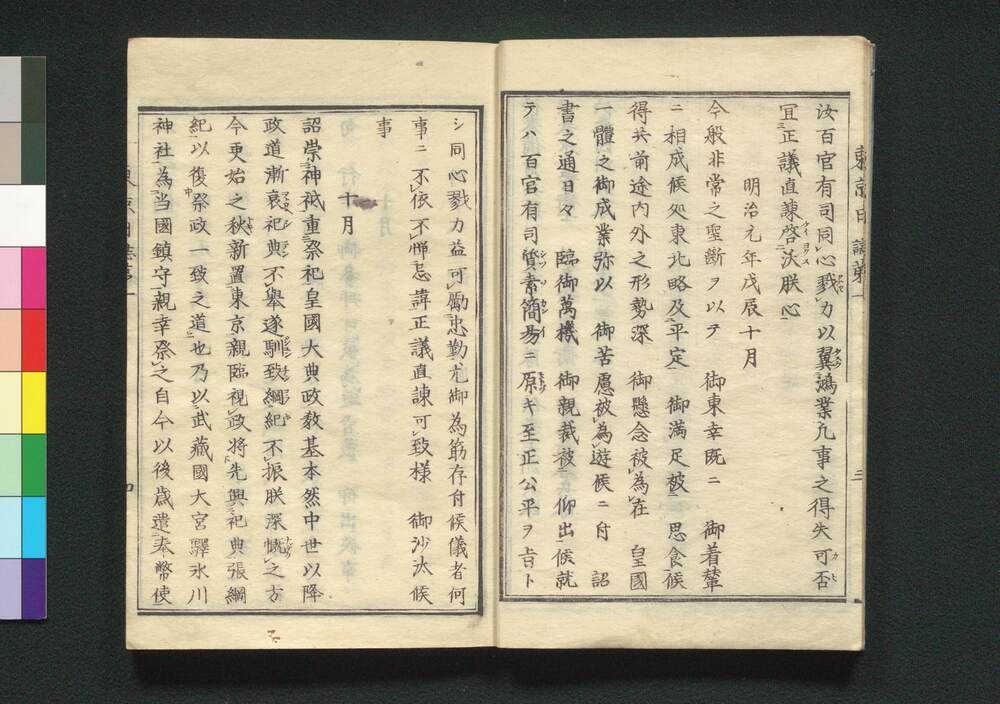 東京日誌第一
三
汝百官有司同心戮力以翼鴻業凡事之得失可否
宜正議直諫啓沃朕心
明治元年戊辰十月
今般非常之聖断ヲ以テ　御東幸既ニ　御着輦
ニ相成候処東北略及平定　御満足被　思食候
得共前途内外之形勢深　御懸念被為在　皇國
一體之御成業弥以　御苦慮被為遊候ニ付　詔
書之通日々　臨御萬機　御親裁被　仰出候就
テハ百官有司質素簡易ニ原キ至正公平ヲ旨ト
シ同心戮力益可勵忠勤尤御為筋存付候儀者何
事ニ不依不憚忌諱正議直諫可致様　御沙汰候
事
十月
詔崇神祗重祭祀皇國大典政教基本然中世以降
政道漸衰祀典不擧遂馴致綱紀不振朕深慨之方
今更始之秋新置東京親臨視政将先興祀典張綱
紀以復祭政一致之道也乃以武藏國大宮驛氷川
神社為当國鎮守親幸祭之自今以後歳遣奉幣使
四